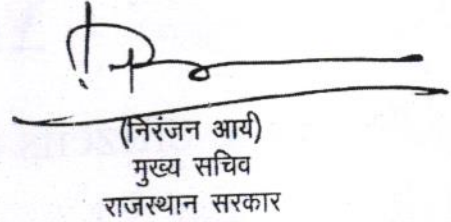 (निरंजन आर्य)
मुख्य सचिव
राजस्थान सरकार